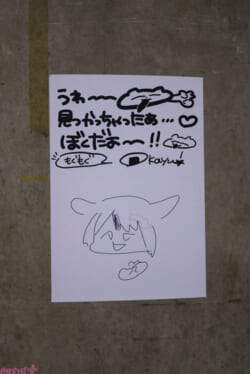 うわ〜〜
見つかっちゃったぁ…♡
ぼくだよ〜!!
もぐもぐ
Kayu